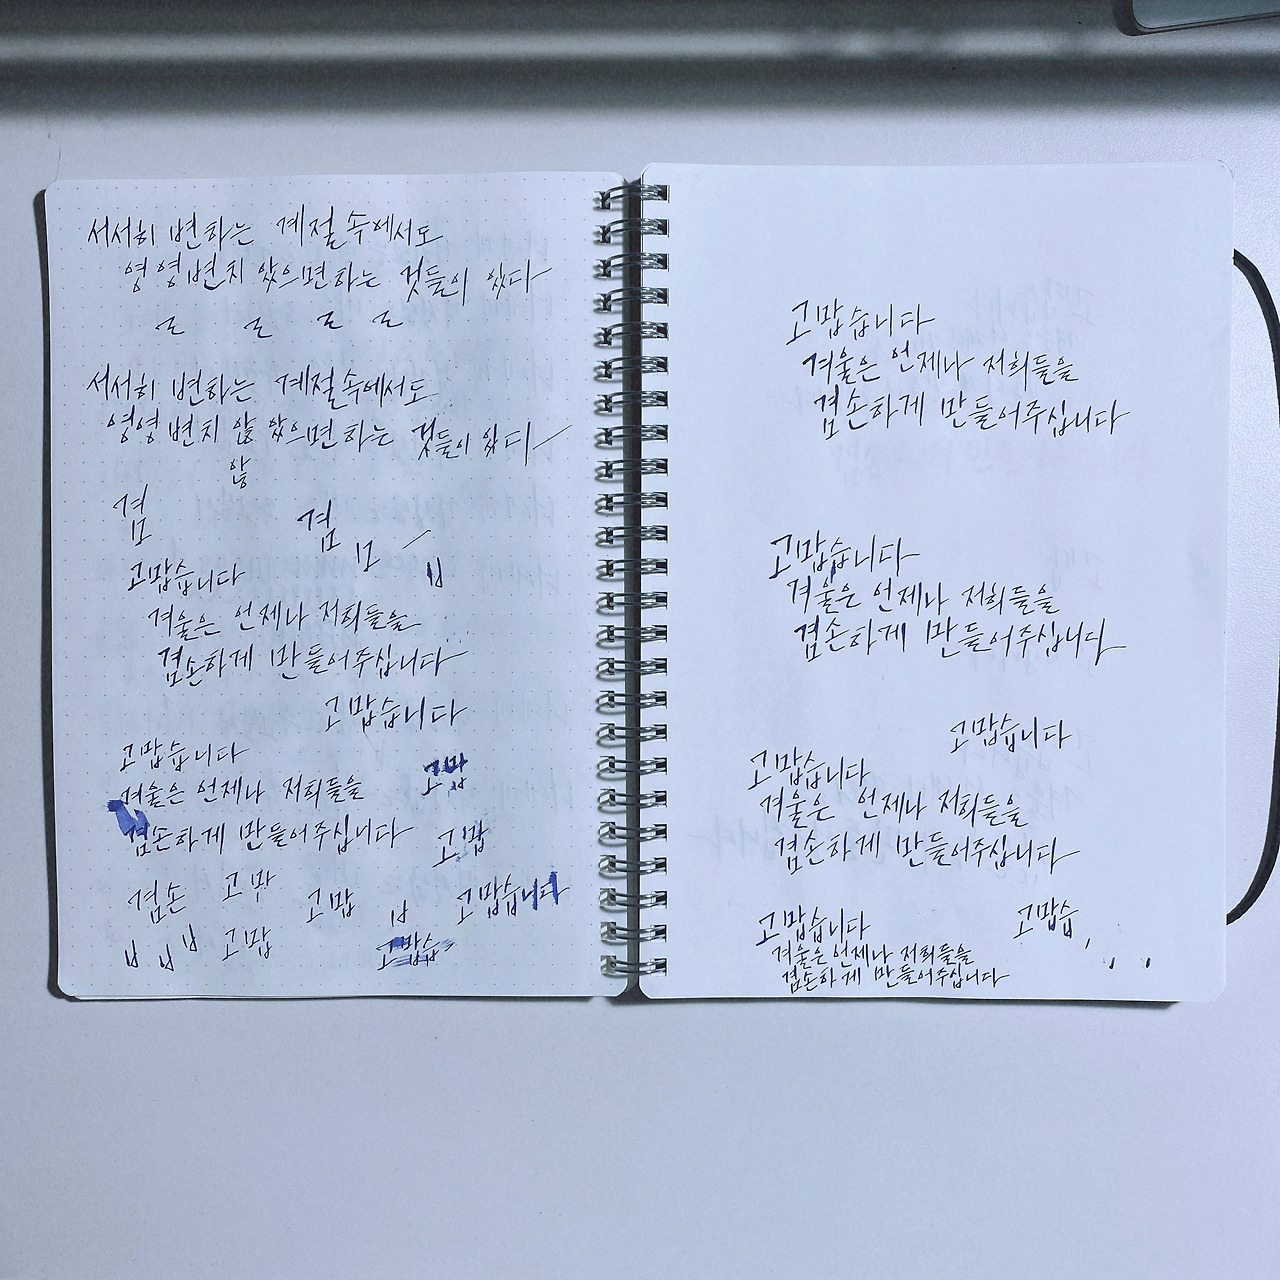 서서히 변하는 계절 속에서도
영영 변치 았으면 하는 것들이 있다
ㄹ ㄹ ㄹ ㄹ
서서히 변하는 계절 속에서도
영영 변치 않 았으면 하는 것들이 있다
않
겸 겸 ㅁ ㅂ
고맙습니다
겨울은 언제나 저희들을
겸손하게 만들어주십니다
고맙습니다
고맙습니다
겨울은 언제나 저희들을 고맙
겸손하게 만들어주십니다 고맙
겸손 고맙 고맙 ㅂ 고맙습니다
ㅂ ㅂ ㅂ 고맙 고맙습
고맙습니다
겨울은 언제나 저희들을
겸손하게 만들어주십니다
고맙습니다
겨울은 언제나 저희들을
겸손하게 만들어주십니다
고맙습니다
고맙습니다
겨울은 언제나 저희들을
겸손하게 만들어주십니다
고맙습니다 고맙습
겨울은 언제나 저희들을
겸손하게 만들어주십니다